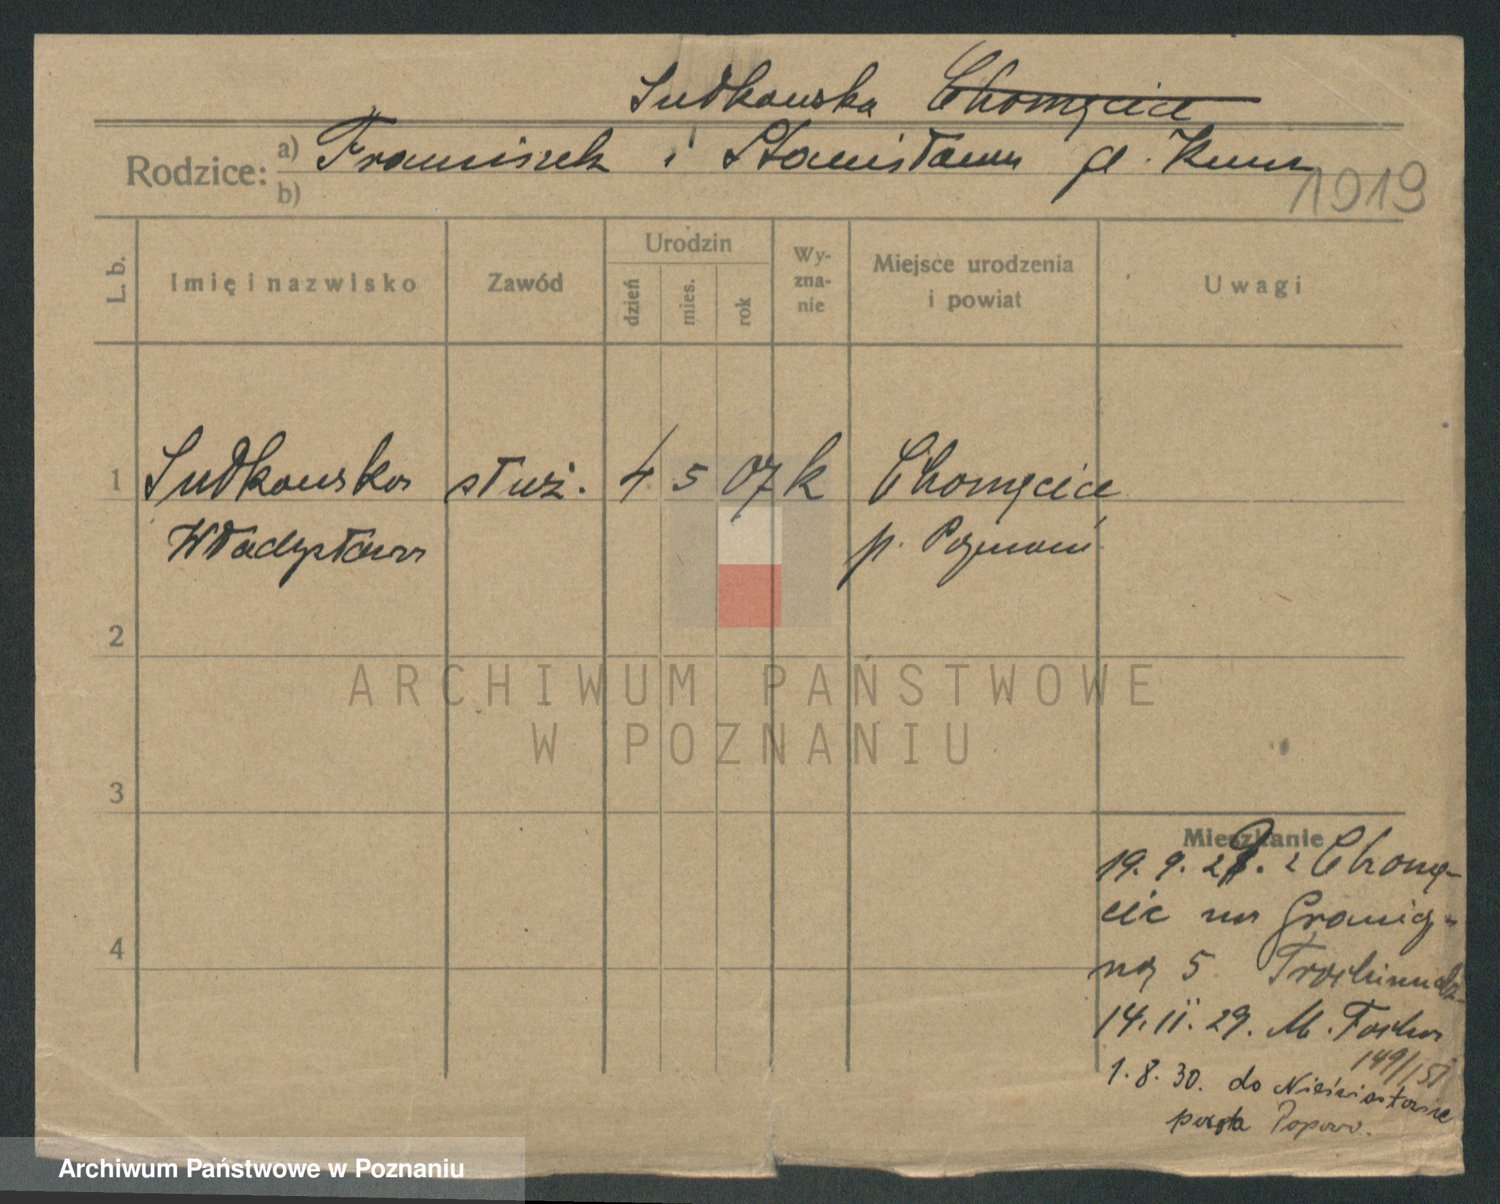 Sudkowska Chomęcice
Rodzice: a) Franciszek i Stanisława
b)
1919
L. b. Imię i nazwisko Zawód Urodzin dzień mies. rok Wyznanie Miejsce urodzenia i powiat Uwagi
1 Sudkowska służ. 4 5 07 k Chomęcice
Władysława p. Poznań
2
ARCHIWUM PAŃSTWOWE
W POZNANIU
3
Mieszkanie
19. 9. z Chomę-
cic na Granicz-
ną 5
4
14. 11. 29. M. Focha
149/151
1. 8. 30. do
poczta Popowo.
Archiwum Państwowe w Poznaniu